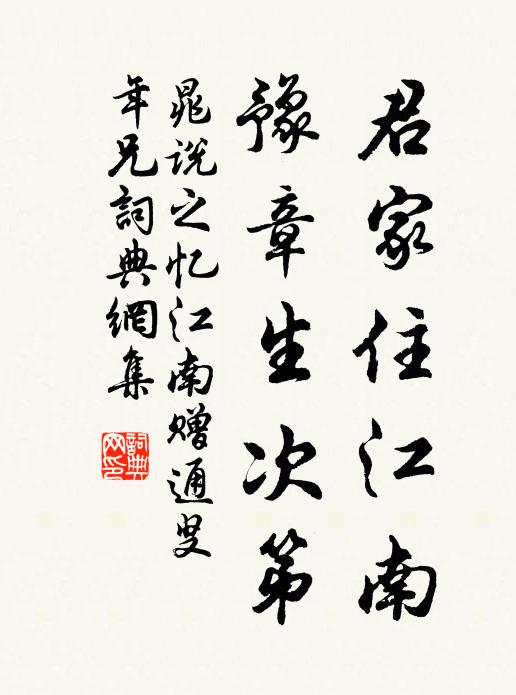 君家住江南
豫章生次第
晁说之忆江南赠通叟
年兄詞典網集
詞典
网印